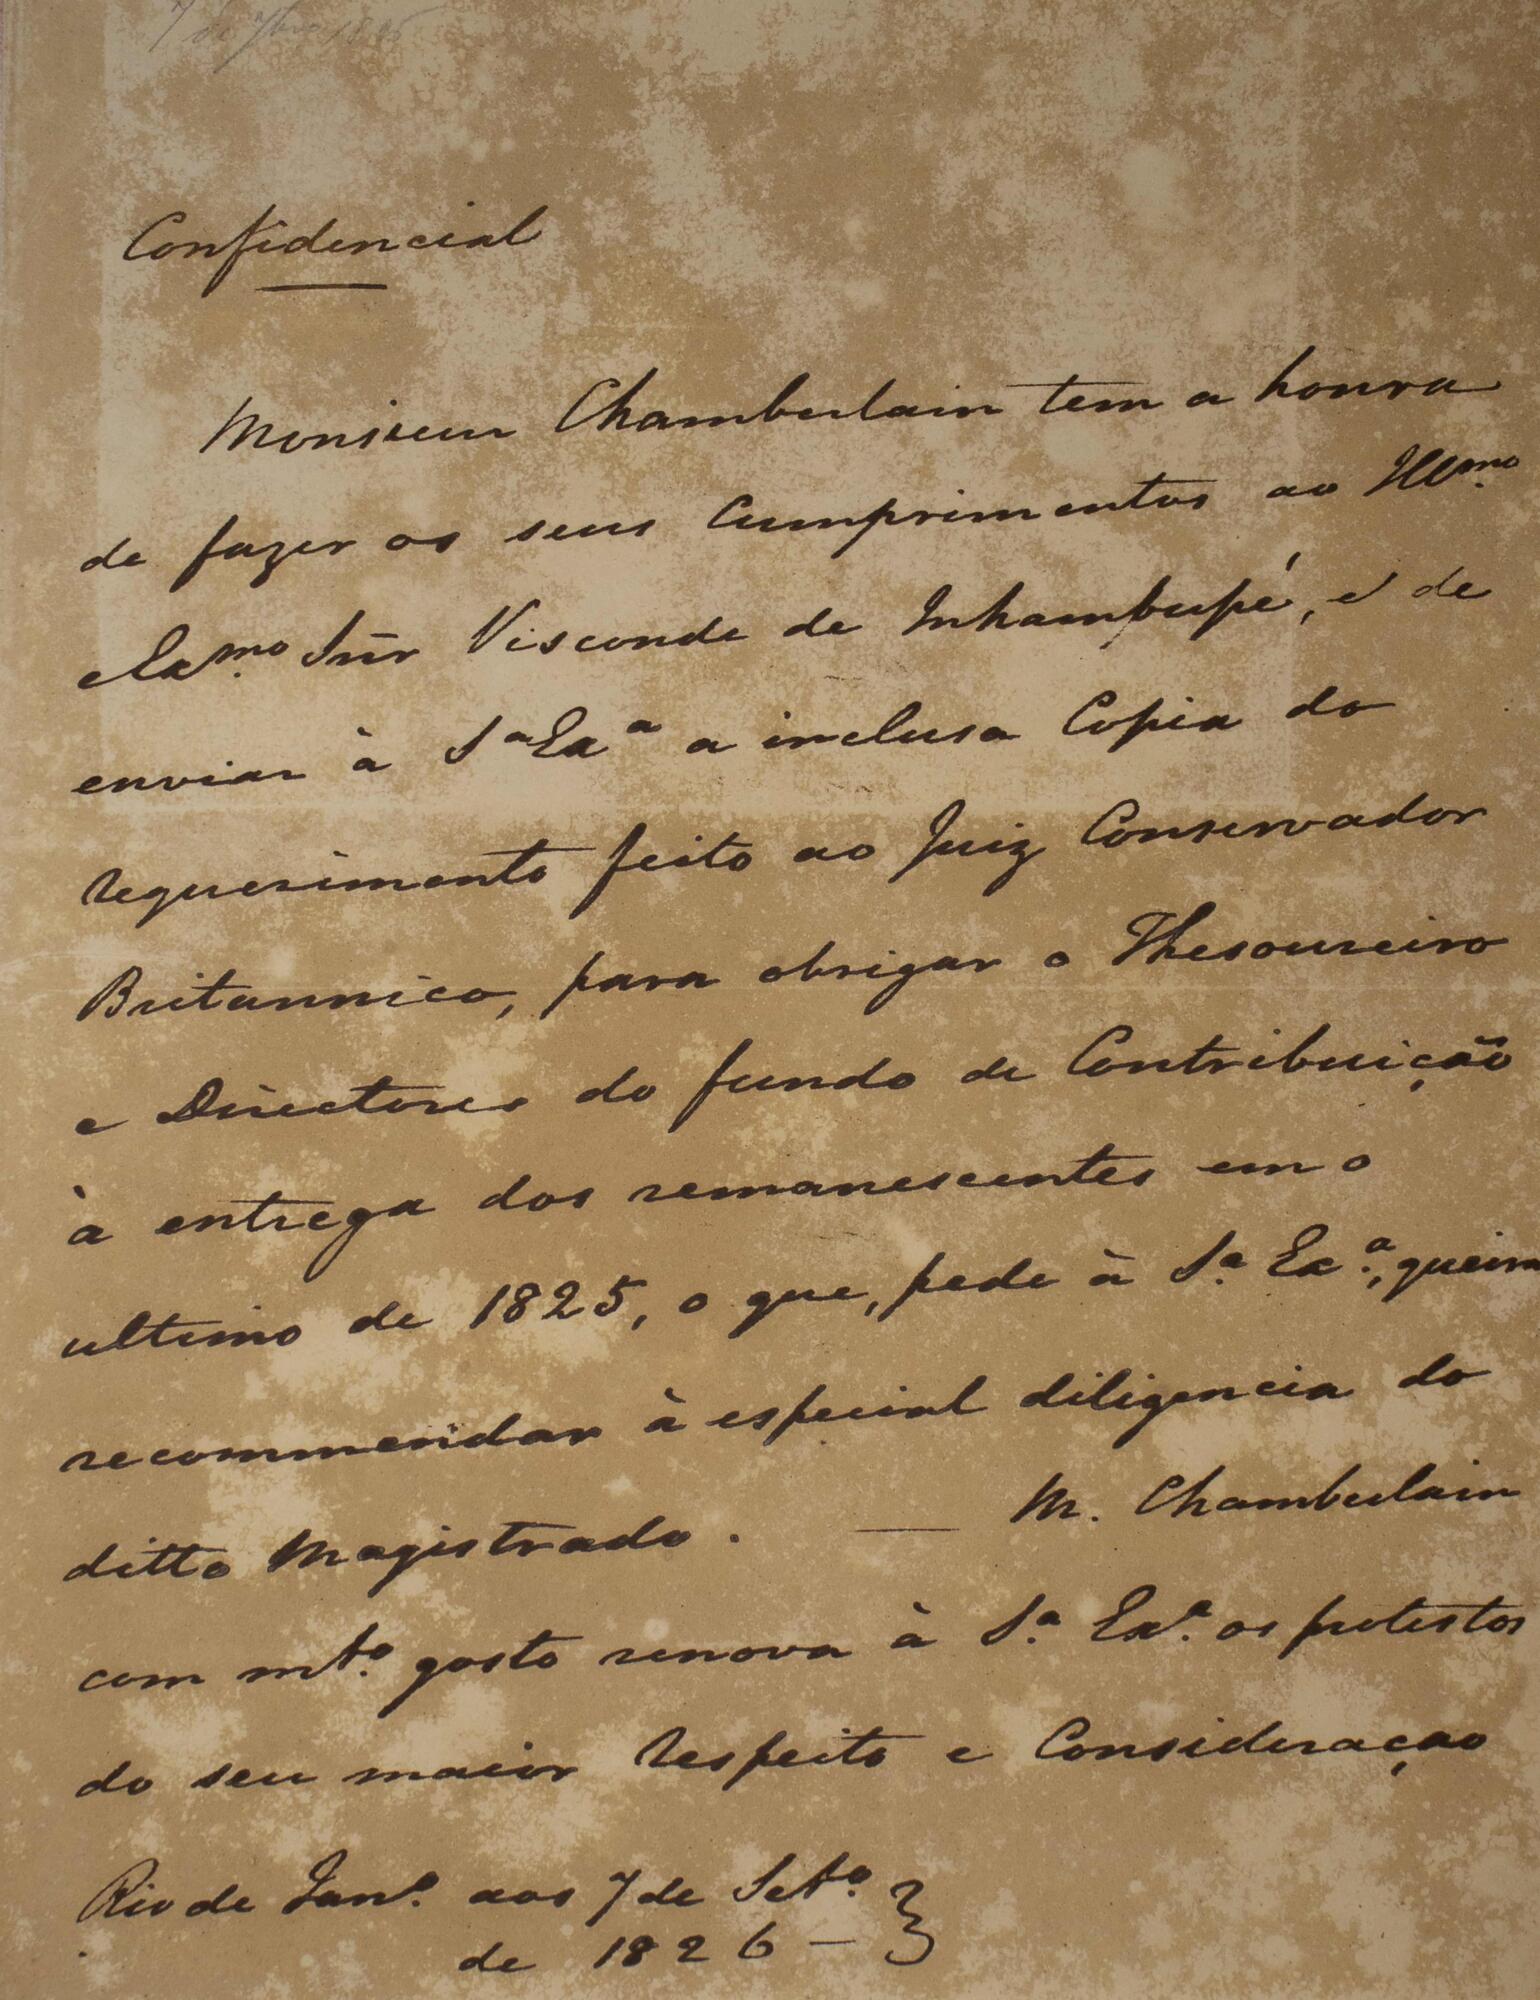 Confidencial
Monsieur Chamberlain tem a honra
de fazer os seus Cumprimentos ao Illmo.
e Exmo. Snr Visconde de Inhambupé, e de
enviar à Sa Exa a inclusa Copia do
requerimento feito ao Juiz Conservador
Britannico, para obrigar o Thesoureiro
e Directores do fundo de Contribuição
à entrega dos remanescentes em o
ultimo de 1825, o que, pede à Sa. Exa., queira
recommendar à especial diligencia do
ditto Magistrado. — M. Chamberlain
com mto. gosto renova à Sa. Exa. os protestos
do seu maior respeito e Consideraçao
Rio de Jano. aos 7 de Setbo. }
de 1826 —